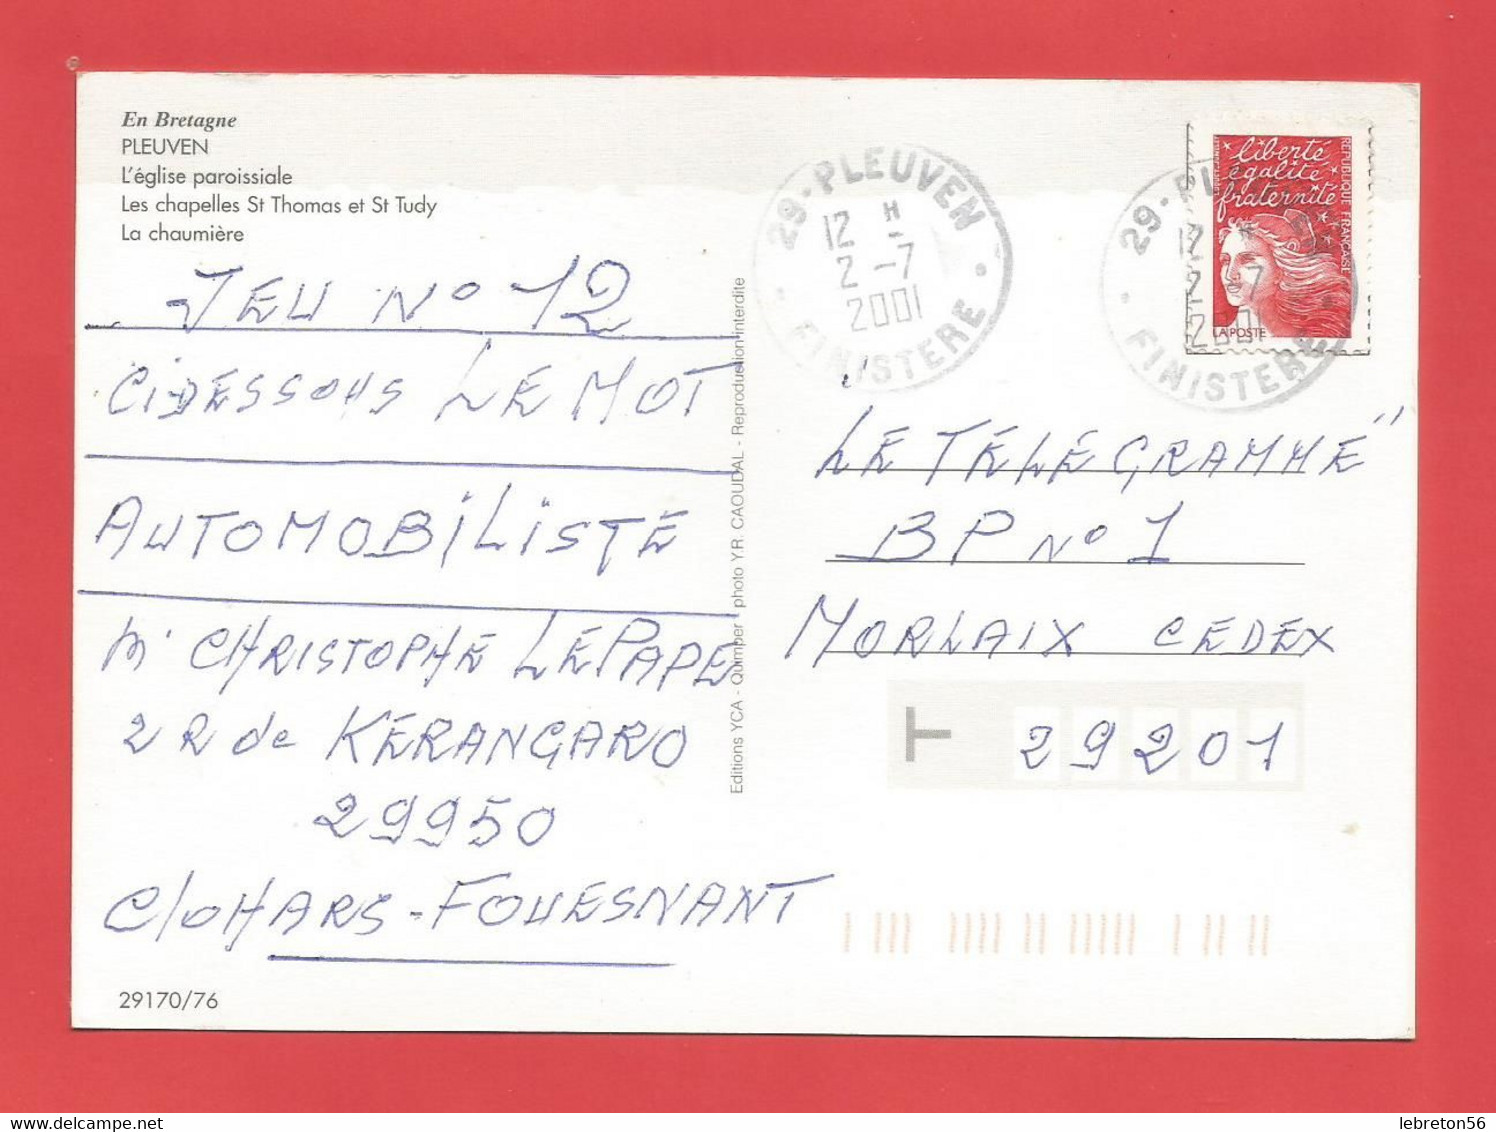 En Bretagne
PLEUVEN
L'église paroissiale
Les chapelles St Thomas et St Tudy
La chaumière
JEU N° 12
CIDESSOUS LE MOT
AUTOMOBILISTE
Mr CHRISTOPHE LE PAPE
2 R de KERANGARO
29950
C/OHARS-FOUESNANT
29170/76
Editions YCA - Quimper - photo Y.R. CAOUDAL - Reproduction interdite
29-PLEUVEN
12 H
2-7
2001
FINISTERE
29-PL
12 H
2 7
2001
FINISTERE
liberté
égalité
fraternité
REPUBLIQUE FRANÇAISE
LA POSTE
LE TÉLÉGRAMME"
BP N° 1
MORLAIX CEDEX
T
29201
lebreton56